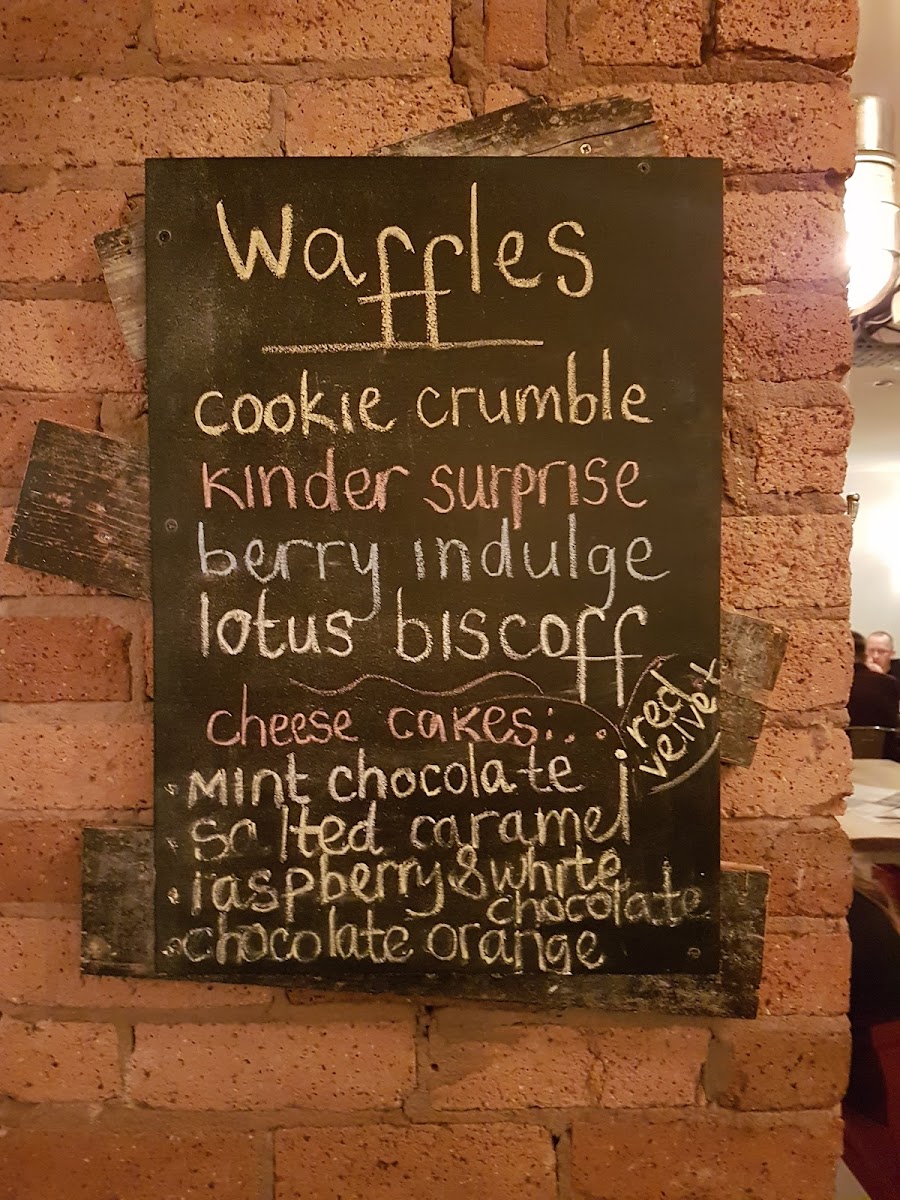 Waffles
cookie crumble
kinder surprise
berry indulge
lotus biscoff
cheese cakes:..
red
velvet
mint chocolate
salted caramel
raspberry & white
chocolate
chocolate orange